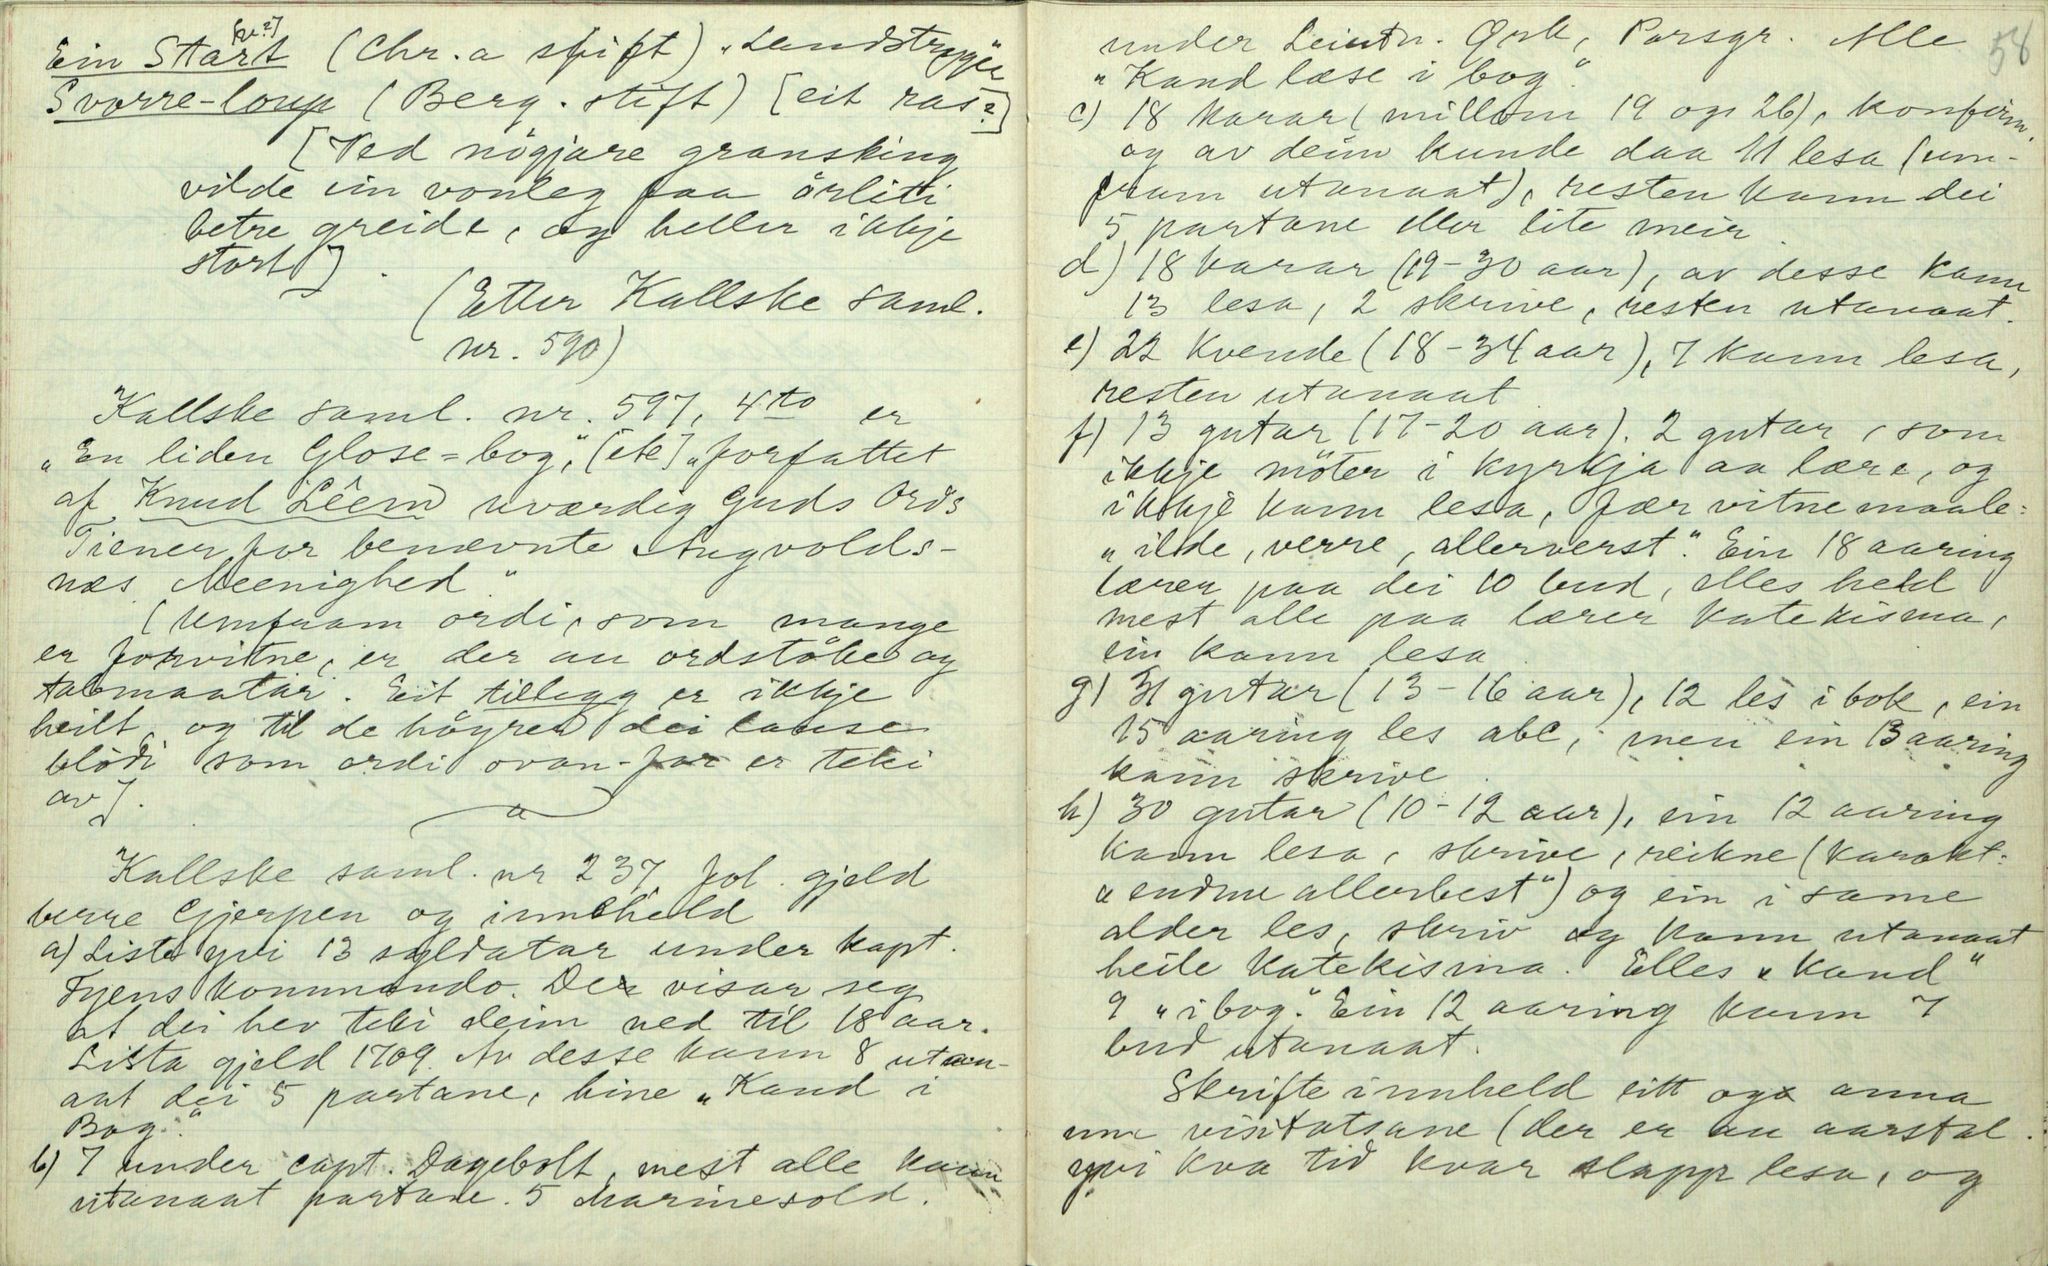 [u?]
Ein Start (Chr.a stift) „Landstryger"
Svarre-loup (Berg. stift) [eit ras?]
[Ved nögjare gransking
vilde ein vonleg faa örliti
betre greide, og heller ikkje
stort].
(Etter Kallske saml.
nr. 590)
Kallske saml. nr. 597, 4to er
„En liden Glose=bog", [etc] „forfattet
af Knud Léem uværdig Guds Ords
Tiener for benævnte Augvolds-
næs Meenighed"
(Umfram ordi, som mange
er forvitne, er der au ordstöke og
talemaatar. Eit tillegg er ikkje
heilt, og til de högre dei lause
blödi som ordi ovan-for er teki
av].
Kallske saml. nr 237, fol. gjeld
berre Gjerpen og inneheld
a) Liste yvi 13 soldatar under kapt.
Fyens kommando. Der visar seg
at dei hev teki deim ned til 18 aar.
Lista gjeld 1709. Av desse kann 8 utan-
aat dei 5 partane, hine „Kand i
Bog".
b) 7 under capt. Dagebolt, mest alle kann
utanaat partane. 5 Marinesold.
58
under Leiutn. Qvk, Porsgr. Alle
„Kand læse i bog".
c) 18 karar (millom 19 og 26), konfirm.
og av deim kunde daa 11 lesa (um-
fram utanaat), resten kann dei
5 partane eller lite meir.
d) 18 karar (19-30 aar), av desse kann
13 lesa, 2 skrive, resten utanaat.
e) 22 kvende (18-34 aar), 7 kann lesa,
resten utanaat
f) 13 gutar (17-20 aar). 2 gutar, som
ikkje möter i kyrkja aa lære, og
ikkje kann lesa, fær vitnemaale:
„ilde, verre, allerverst". Ein 18 aaring
lærer paa dei 10 bud, elles held
mest alle paa lærer katekisma,
ein kann lesa.
g) 31 gutar (13-16 aar), 12 les i bok, ein
15 aaring les abc, men ein 13 aaring
kann skrive.
h) 30 gutar (10-12 aar), ein 12 aaring
kann lesa, skrive, reikne (karakt:
„endnu allerbest") og ein i same
alder les, skriv og kann utanaat
heile katekisma. Elles „kand"
9 „i bog". Ein 12 aaring kann 7
bud utanaat.
Skrifte innheld eitt og anna
um visitatsane (der er au aarstal
yvi kva tid kvar slapp lesa, og